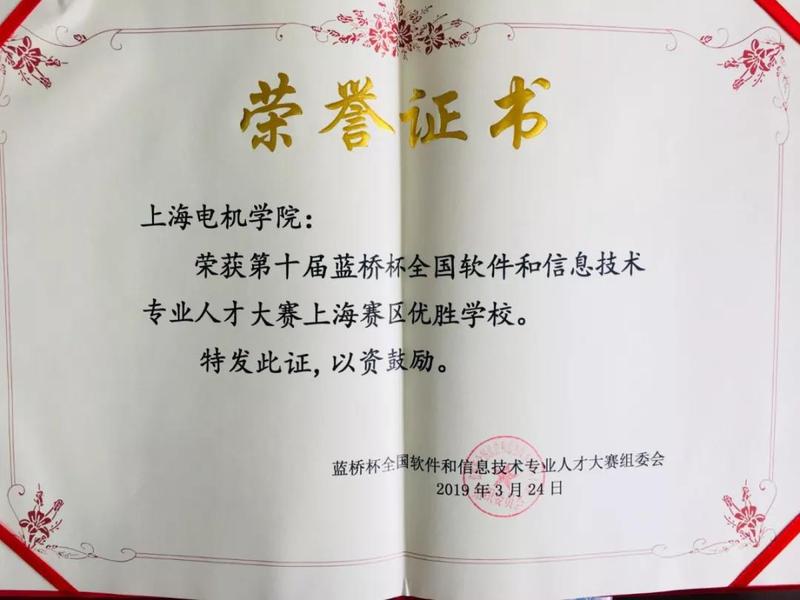 荣誉证书
上海电机学院：
荣获第十届蓝桥杯全国软件和信息技术
专业人才大赛上海赛区优胜学校。
特发此证，以资鼓励。
蓝桥杯全国软件和信息技术专业人才大赛组委会
2019年3月24日